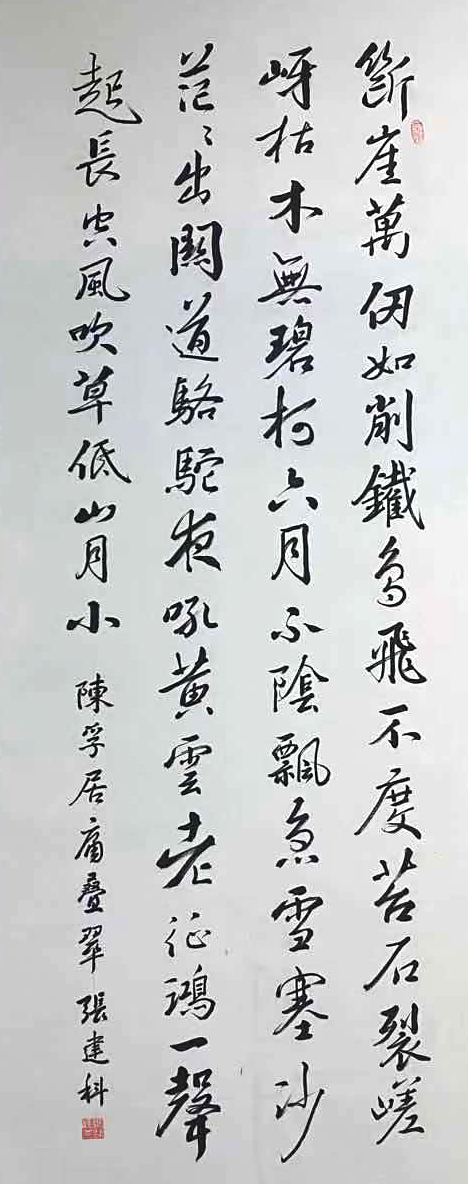 斷崖萬仞如削鐵鳥飛不度苔石裂嵯
岈枯木無碧柯六月不陰飄急雪塞沙
茫〻出關道駱駝夜吼黃雲老征鴻一聲
起長空風吹草低山月小 陳孚居庸疊翠 張建科